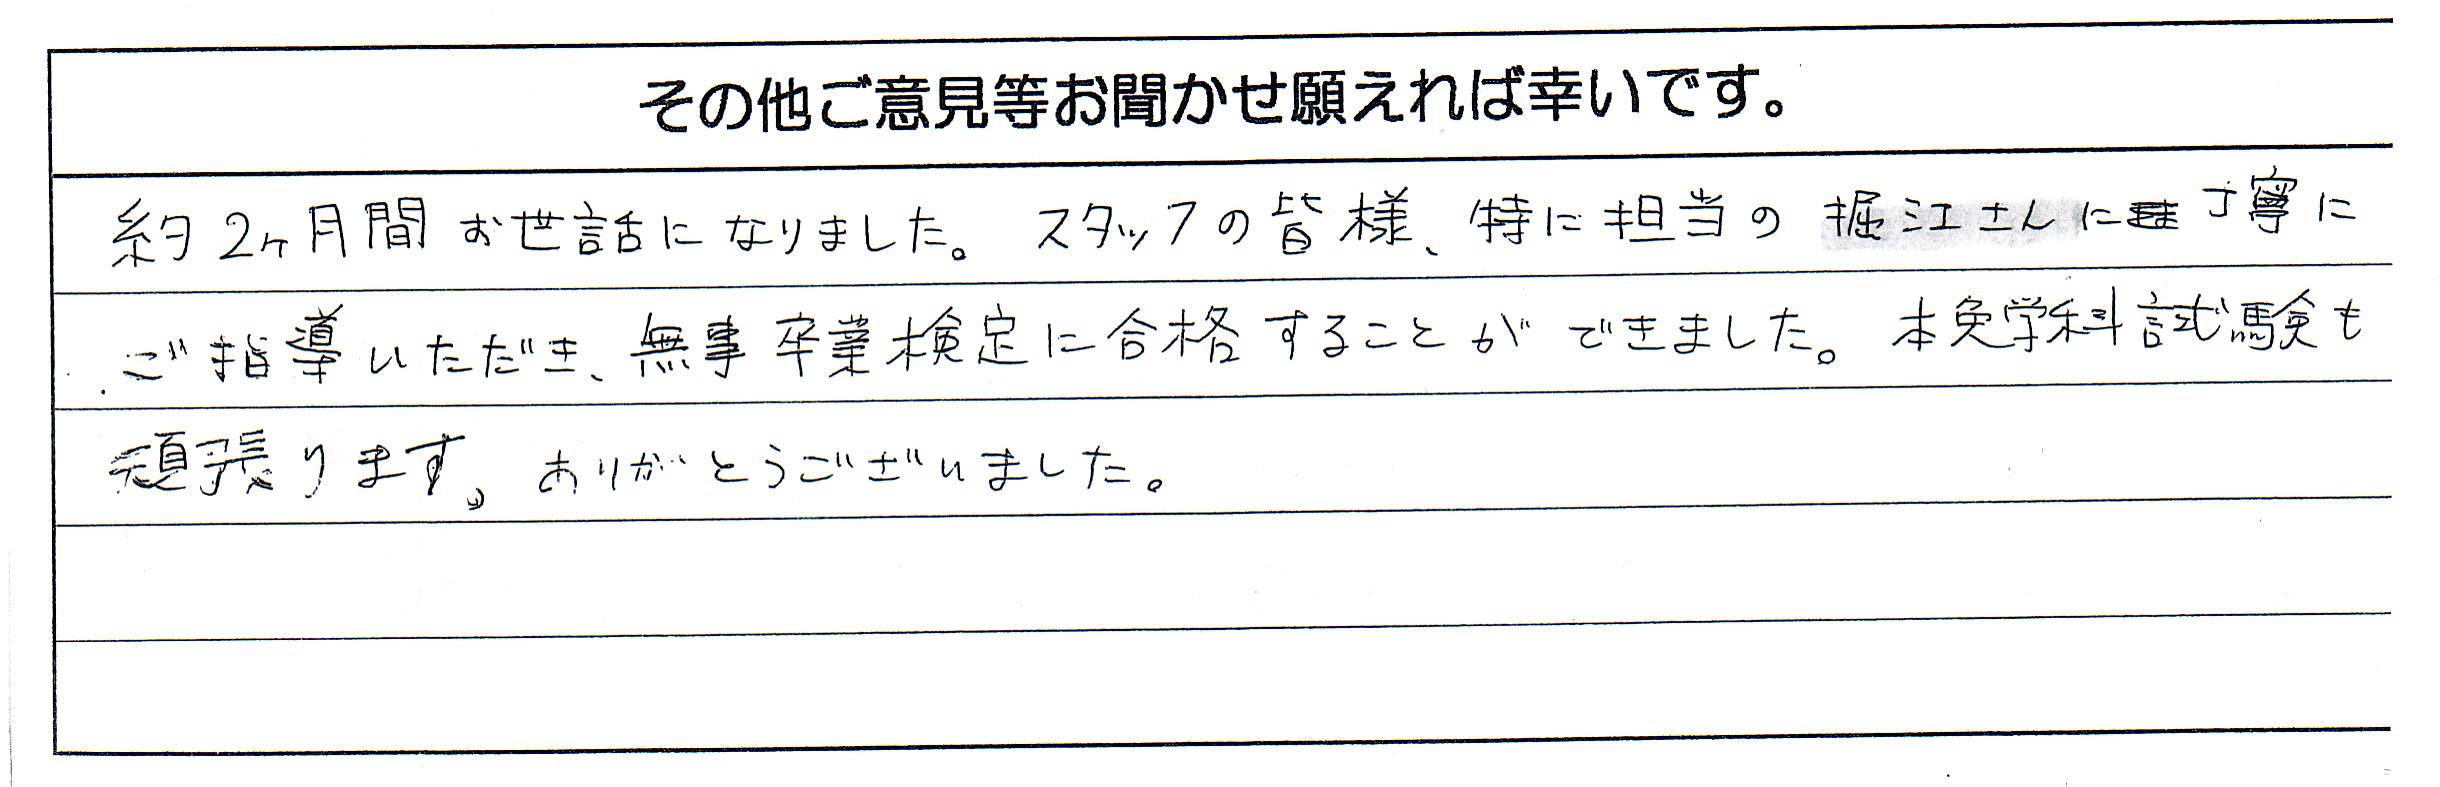 その他ご意見等お聞かせ願えれば幸いです。
約2ヶ月間お世話になりました。スタッフの皆様、特に担当の堀江さんに丁寧に
ご指導いただき、無事卒業検定に合格することができました。本免学科試験も
頑張ります。ありがとうございました。